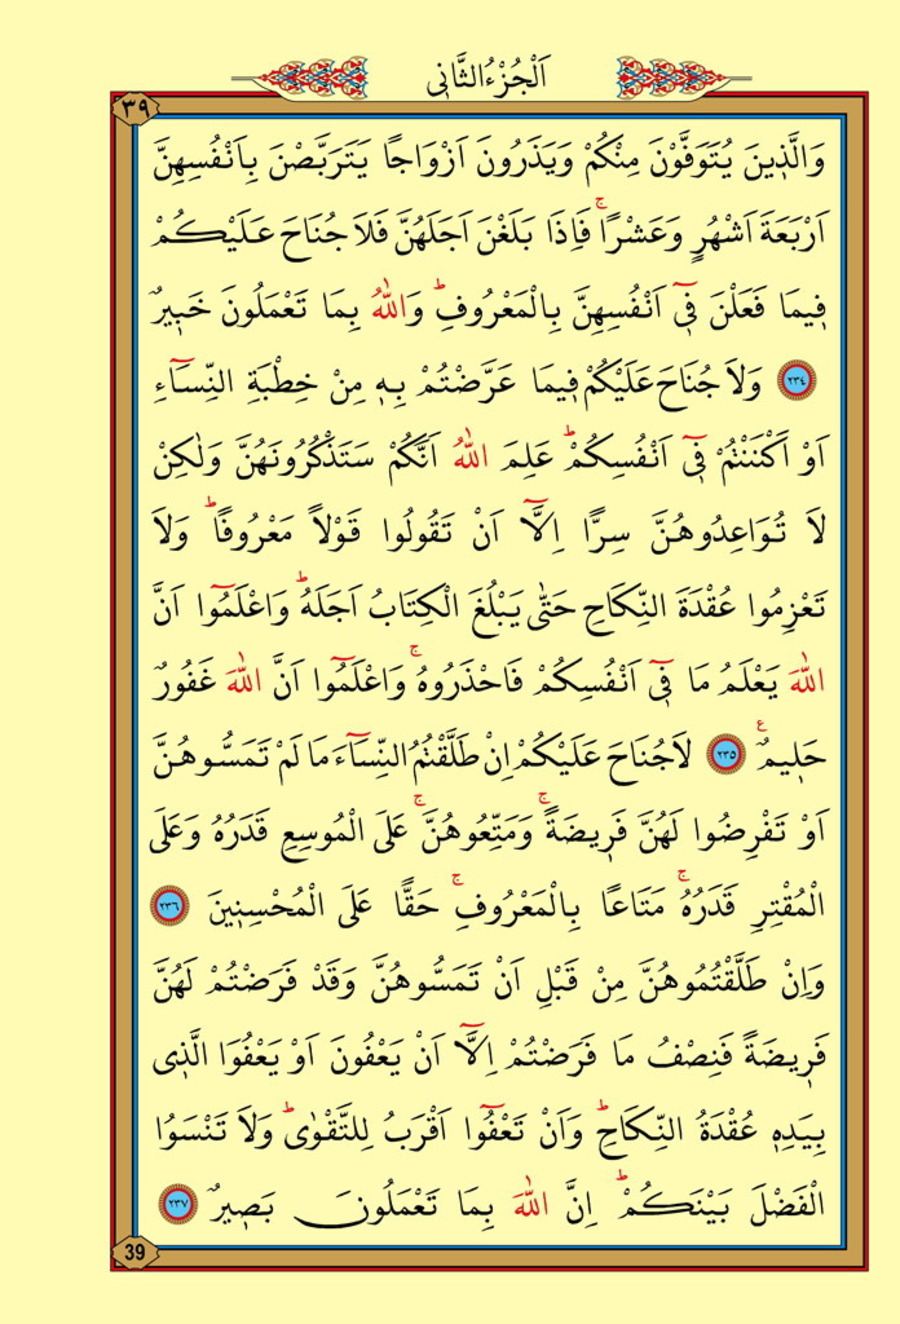 اَلْجُزْءُالثَّانٖى
٣٩
وَالَّذٖينَ يُتَوَفَّوْنَ مِنْكُمْ وَيَذَرُونَ اَزْوَاجًا يَتَرَبَّصْنَ بِاَنْفُسِهِنَّ
اَرْبَعَةَ اَشْهُرٍ وَعَشْرًاۚ فَاِذَا بَلَغْنَ اَجَلَهُنَّ فَلَا جُنَاحَ عَلَيْكُمْ
فٖيمَا فَعَلْنَ فٖٓى اَنْفُسِهِنَّ بِالْمَعْرُوفِؕ وَاللّٰهُ بِمَا تَعْمَلُونَ خَبٖيرٌ
٢٣٤ وَلَا جُنَاحَ عَلَيْكُمْ فٖيمَا عَرَّضْتُمْ بِهٖ مِنْ خِطْبَةِ النِّسَٓاءِ
اَوْ اَكْنَنْتُمْ فٖٓى اَنْفُسِكُمْؕ عَلِمَ اللّٰهُ اَنَّكُمْ سَتَذْكُرُونَهُنَّ وَلٰكِنْ
لَا تُوَاعِدُوهُنَّ سِرًّا اِلَّٓا اَنْ تَقُولُوا قَوْلًا مَعْرُوفًاؕ وَلَا
تَعْزِمُوا عُقْدَةَ النِّكَاحِ حَتّٰى يَبْلُغَ الْكِتَابُ اَجَلَهُؕ وَاعْلَمُٓوا اَنَّ
اللّٰهَ يَعْلَمُ مَا فٖٓى اَنْفُسِكُمْ فَاحْذَرُوهُۚ وَاعْلَمُٓوا اَنَّ اللّٰهَ غَفُورٌ
حَلٖيمٌ ع ٢٣٥ لَاجُنَاحَ عَلَيْكُمْ اِنْ طَلَّقْتُمُ النِّسَٓاءَ مَا لَمْ تَمَسُّوهُنَّ
اَوْ تَفْرِضُوا لَهُنَّ فَرٖيضَةًۚ وَمَتِّعُوهُنَّۚ عَلَى الْمُوسِعِ قَدَرُهُ وَعَلَى
الْمُقْتِرِ قَدَرُهُۚ مَتَاعًا بِالْمَعْرُوفِۚ حَقًّا عَلَى الْمُحْسِنٖينَ ٢٣٦
وَاِنْ طَلَّقْتُمُوهُنَّ مِنْ قَبْلِ اَنْ تَمَسُّوهُنَّ وَقَدْ فَرَضْتُمْ لَهُنَّ
فَرٖيضَةً فَنِصْفُ مَا فَرَضْتُمْ اِلَّٓا اَنْ يَعْفُونَ اَوْ يَعْفُوَا الَّذٖى
بِيَدِهٖ عُقْدَةُ النِّكَاحِؕ وَاَنْ تَعْفُٓوا اَقْرَبُ لِلتَّقْوٰىؕ وَلَا تَنْسَوُا
الْفَضْلَ بَيْنَكُمْؕ اِنَّ اللّٰهَ بِمَا تَعْمَلُونَ بَصٖيرٌ ٢٣٧
39